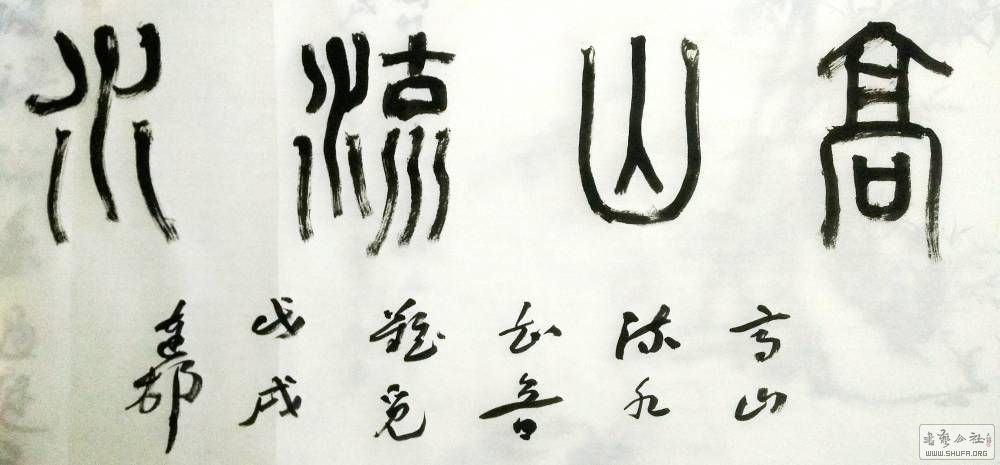 高山流水
高山
流水
知音
難覓
戊戌
建
書藝公社
WWW.SHUFA.ORG